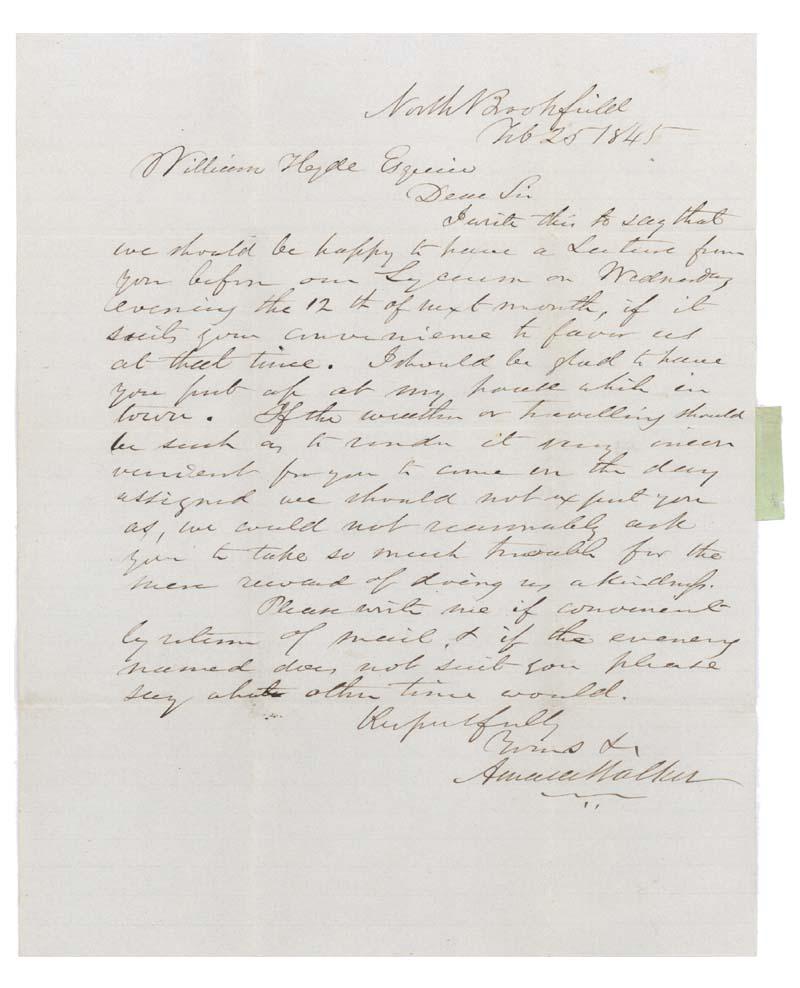 North Brookfield
Feb 25 1845
William Hyde Esquire
Dear Sir
I write this to say that
we should be happy to have a Lecture from
you before our Lyceum on Wednesday
evening the 12 th of next month, if it
suits your convenience to favor us
at that time. I should be glad to have
you put up at my house while in
town. If the weather or travelling should
be such as to render it very incon
venient for you to come on the day
assigned we should not expect you
as, we could not reasonably ask
you to take so much trouble for the
mere reward of doing us a kindness.
Please write me if convenient
by return of mail, & if the evening
named does not suit you please
say what other time would.
Respectfully
Yours &c
Amasa Walker